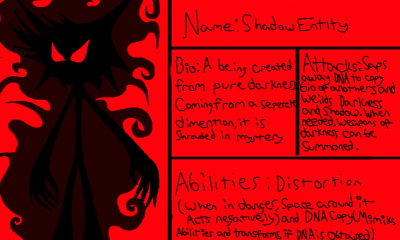 Name: Shadow Entity
Bio: A being created
from pure darkness
Coming from a seperate
dimention, it is
Shrouded in mystery
Attacks: Saps
away DNA to copy
bio of anothers and
weilds Darkness
and Shadow. When
needed, Weapons of
darkness can be
Summoned.
Abilities: Distortion
(When in danger, Space around it
Acts negatively) and DNA Copy (Mimiks
Abilities and transforms if DNA is Obtained)